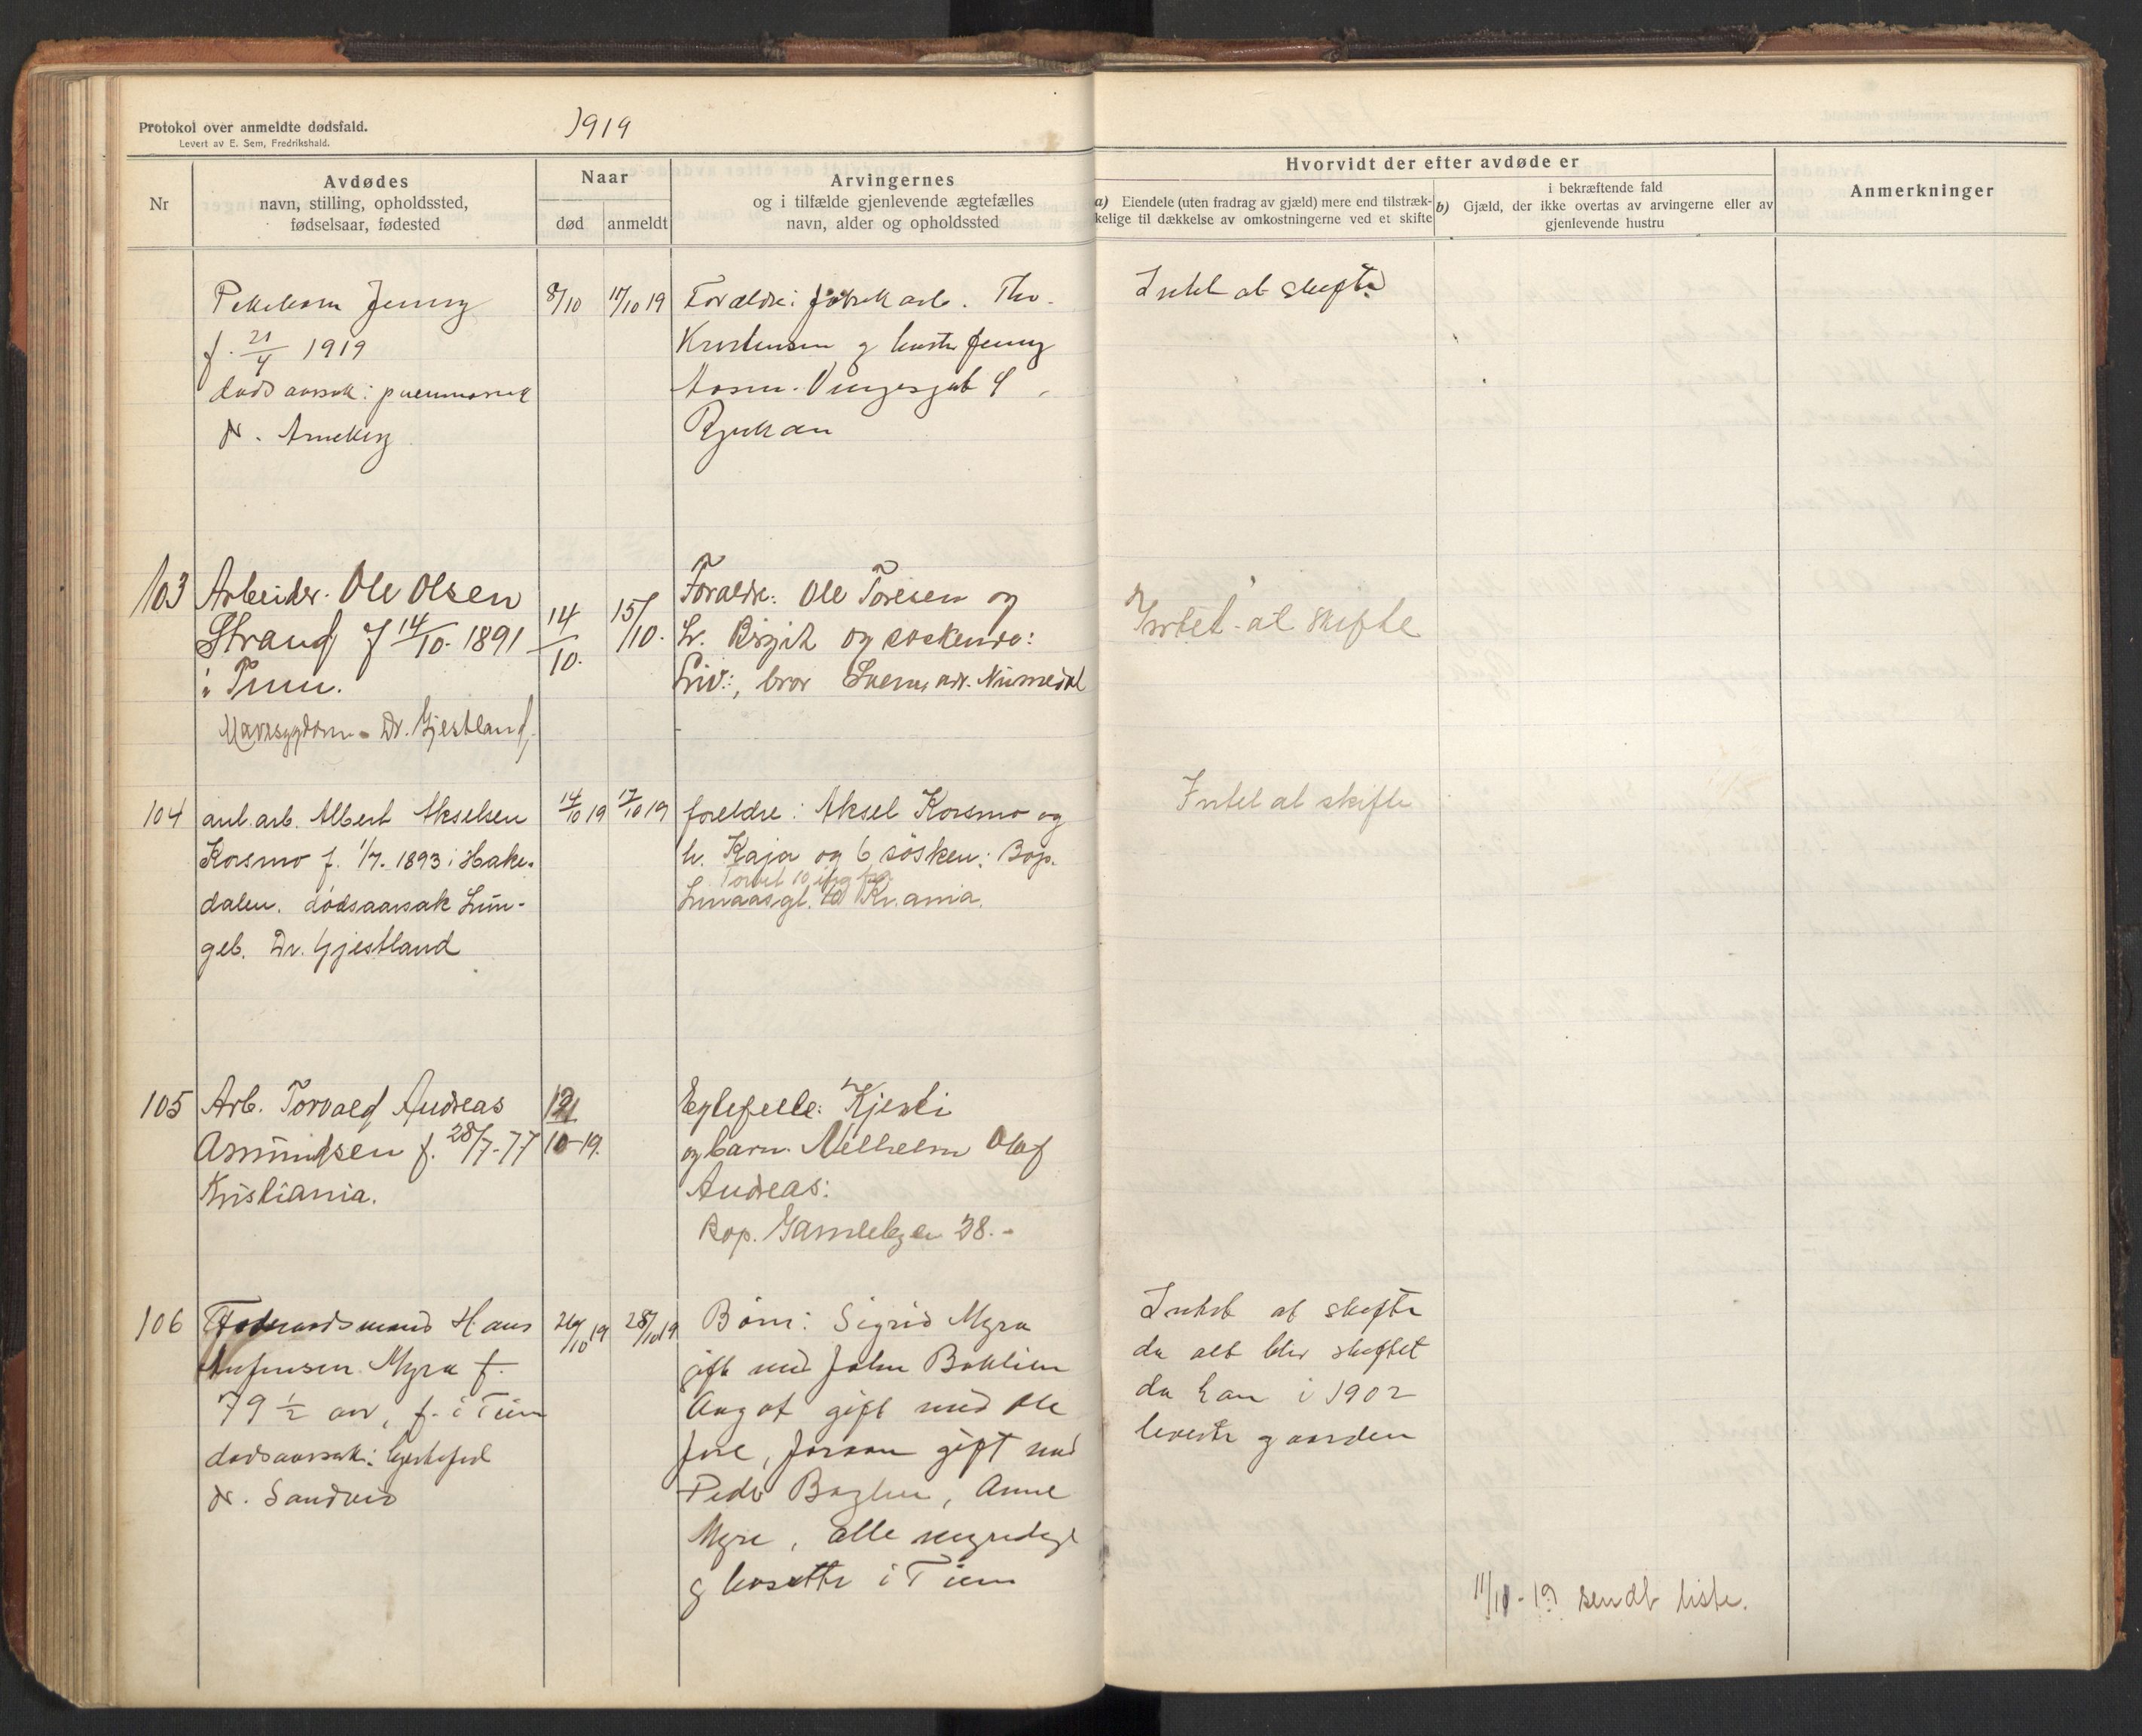 Protokol over anmeldte dødsfald.
Levert av E. Sem, Fredrikshald.
1919
Nr
Avdødes
navn, stilling, opholdssted,
fødselsaar, fødested
Naar
død
anmeldt
Arvingernes
og i tilfælde gjenlevende ægtefælles
navn, alder og opholdssted
Hvorvidt der efter avdøde er
a) Eiendele (uten fradrag av gjæld) mere end tilstræk-
kelige til dækkelse av omkostningerne ved et skifte
i bekræftende fald
b) Gjæld, der ikke overtas av arvingerne eller av
gjenlevende hustru
Anmerkninger
Pikebarn Jenny
f. 21/4 1919
dødsaarsak: pneumonie
dr. Arneberg
8/10
11/10 19
Forældre: fabrik arb. Thv.
Kristensen g hustr Jenny
Aasm. Vinjesgat 9,
Rjukan
Intet at skifte
103
Arbeider. Ole Olsen
Strand f 14/10. 1891
i Tinn.
Mavesygdom - Dr. Gjestland.
14/10.
15/10.
Foraldre: Ole Toresen og
h. Birgit og søskende:
Liv:, bror Numedal
Intet at skifte
104
anl. arb. Albert Akselsen
Korsmo f. 1/7. 1893 i Hake-
dalen. dødsaarsak Lun-
geb. Dr. Gjestland
14/10 19
17/10 19
foreldre: Aksel Korsmo og
h. Kaja og 6 søsken: Bop.
Torvet 10
Kr.ania.
Intet at skifte
105
Arb. Torvald Andreas
Asmundsen f. 28/7-77
Kristiania.
10-19.
Egtefelle: Kjersti
og barn. Vilhelm Olaf
Andreas:
Bop. Gamlebyen 38.-
106
Føderaadsmand Hans
Myra f.
79 1/2 aar, f. i Tinn
dødsaarsak: hjertefeil
dr. Sandvid
26/10 19
28/10 19
Børn: Sigrid Myra
gift med John Baklien
Aagot gift med Ole
Jore, Joraan gift med
Peder, Anne
Myre, alle myndige
g bosatte i Tinn
Intet at skifte
da alt blev skiftet
da han i 1902
leverte gaarden
11/11-19 sendt liste.